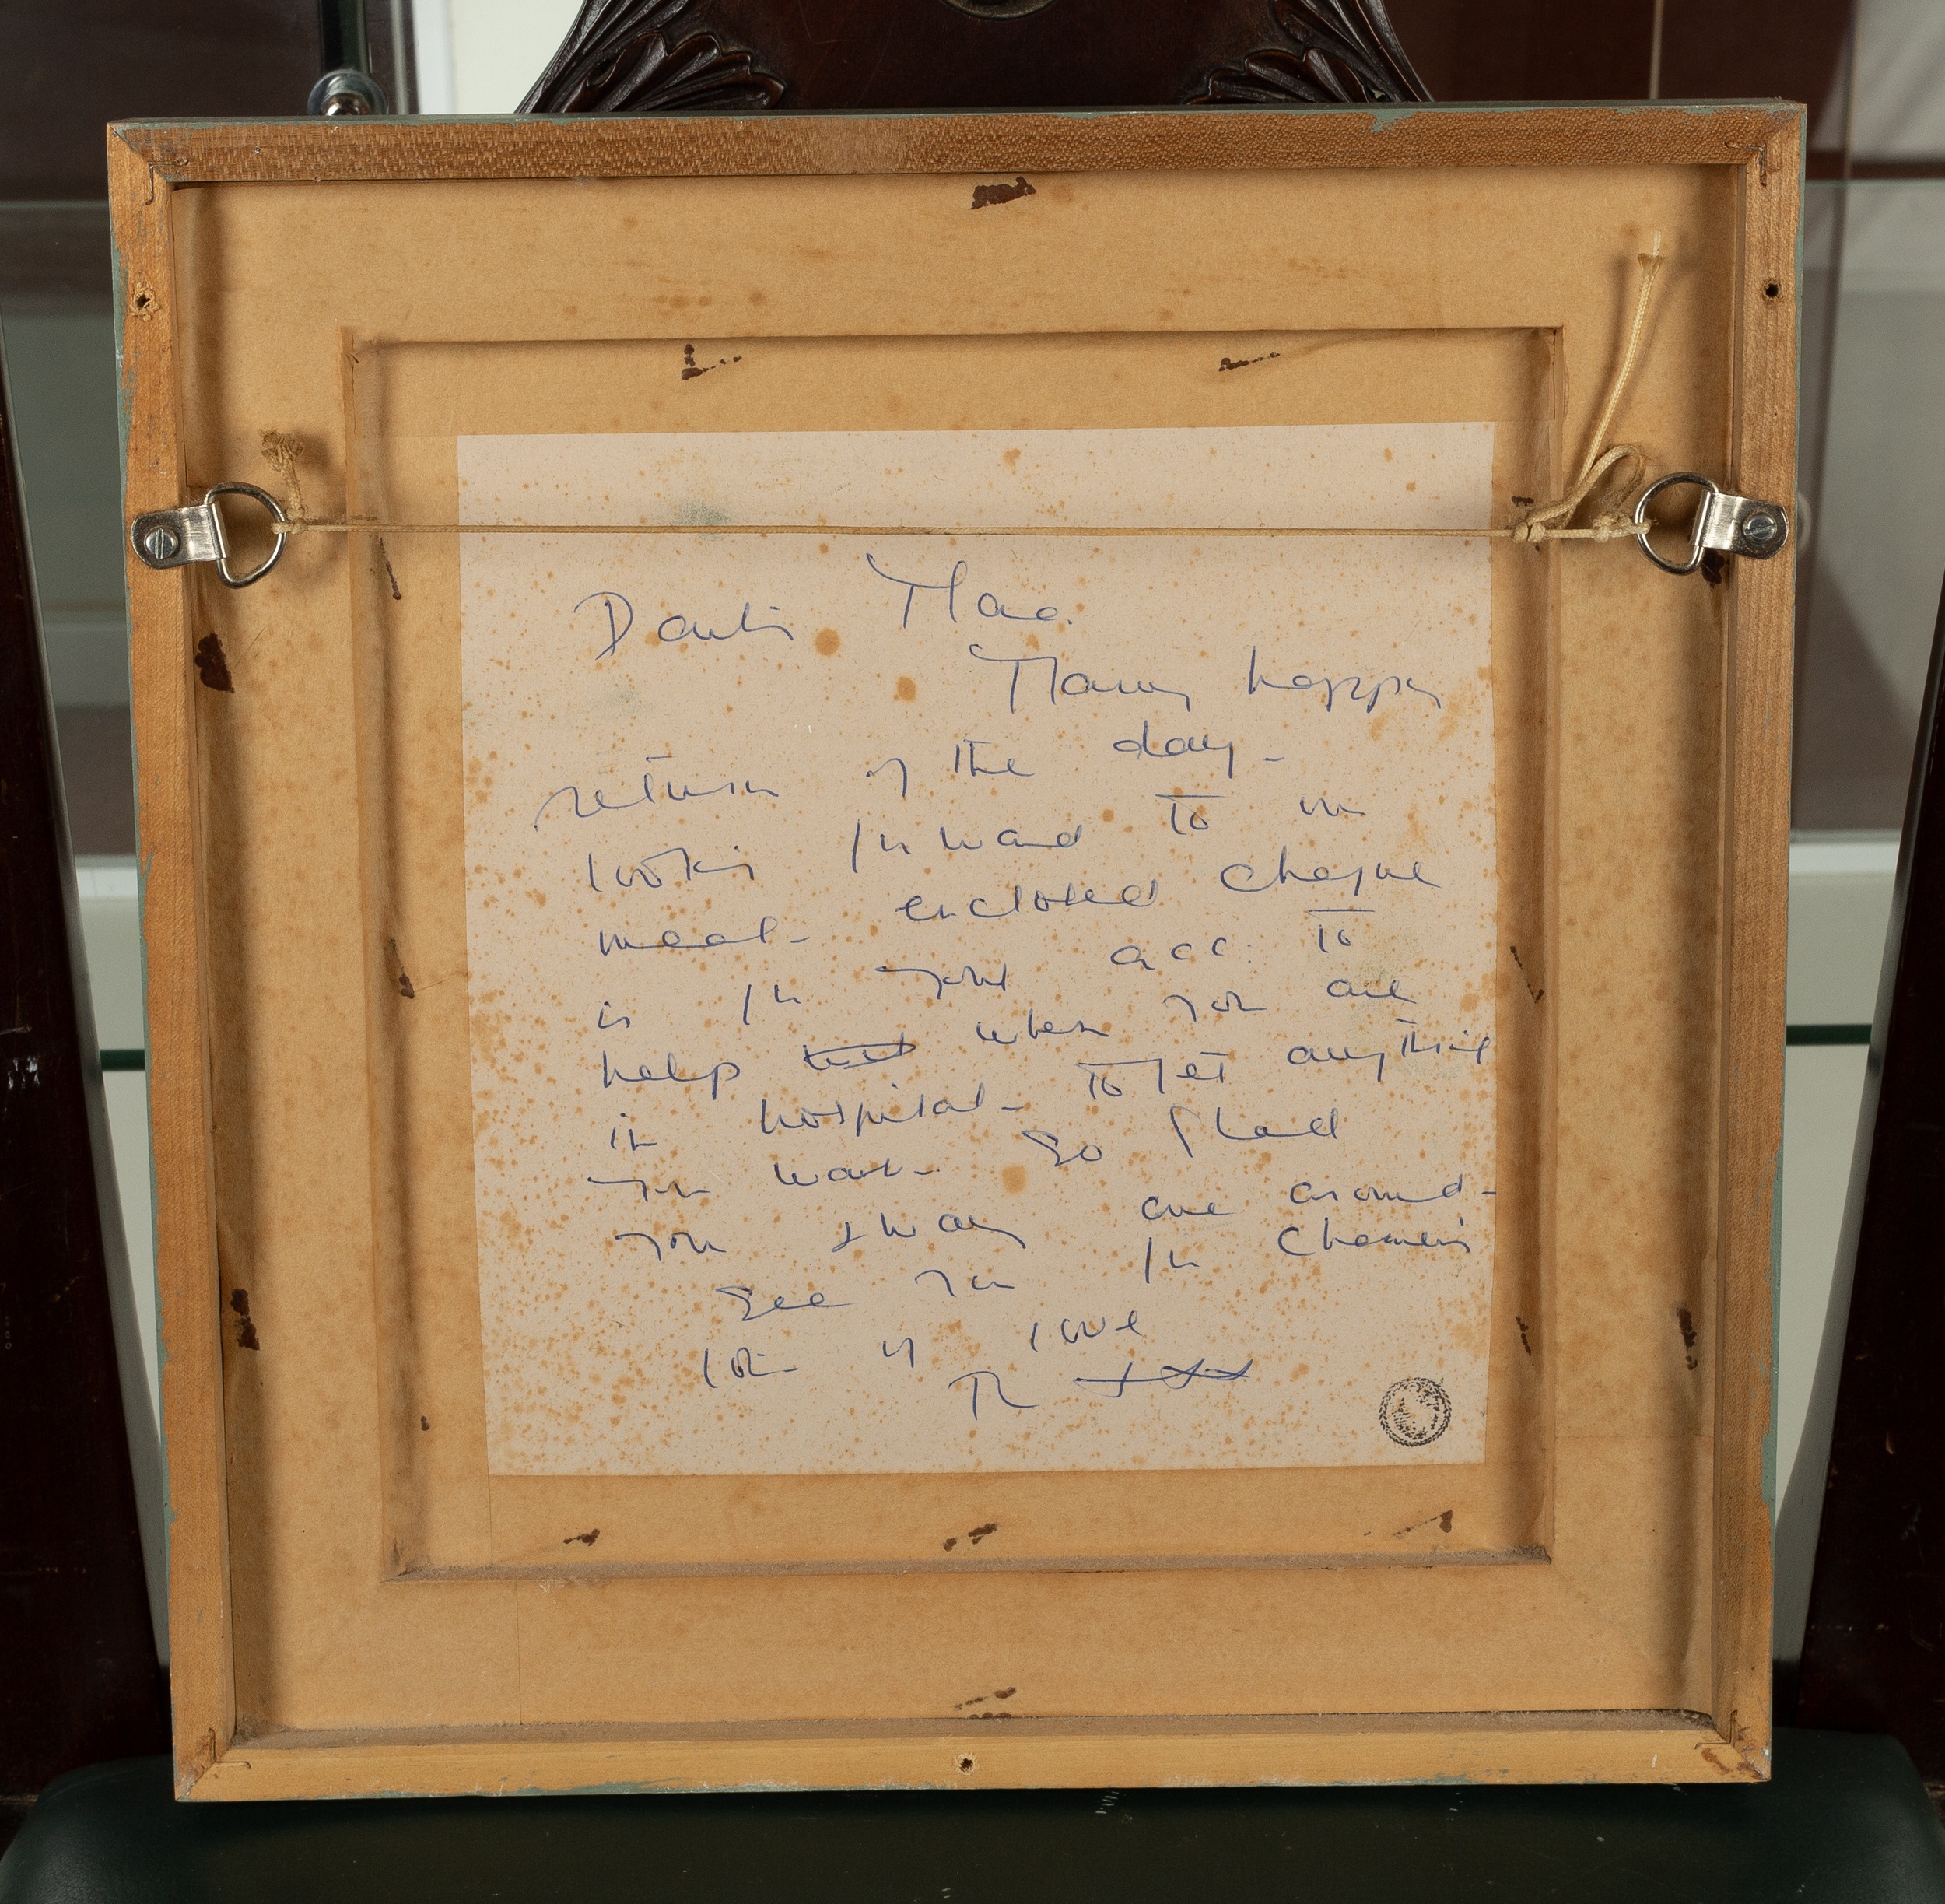 Darling Mac.
Many happy
return of the day -
looking forward to our
meal - enclosed cheque
is for your acc: to
help when you are
in hospital - to get anything
you want - So glad
you & Way are around -
See you for
lots of love